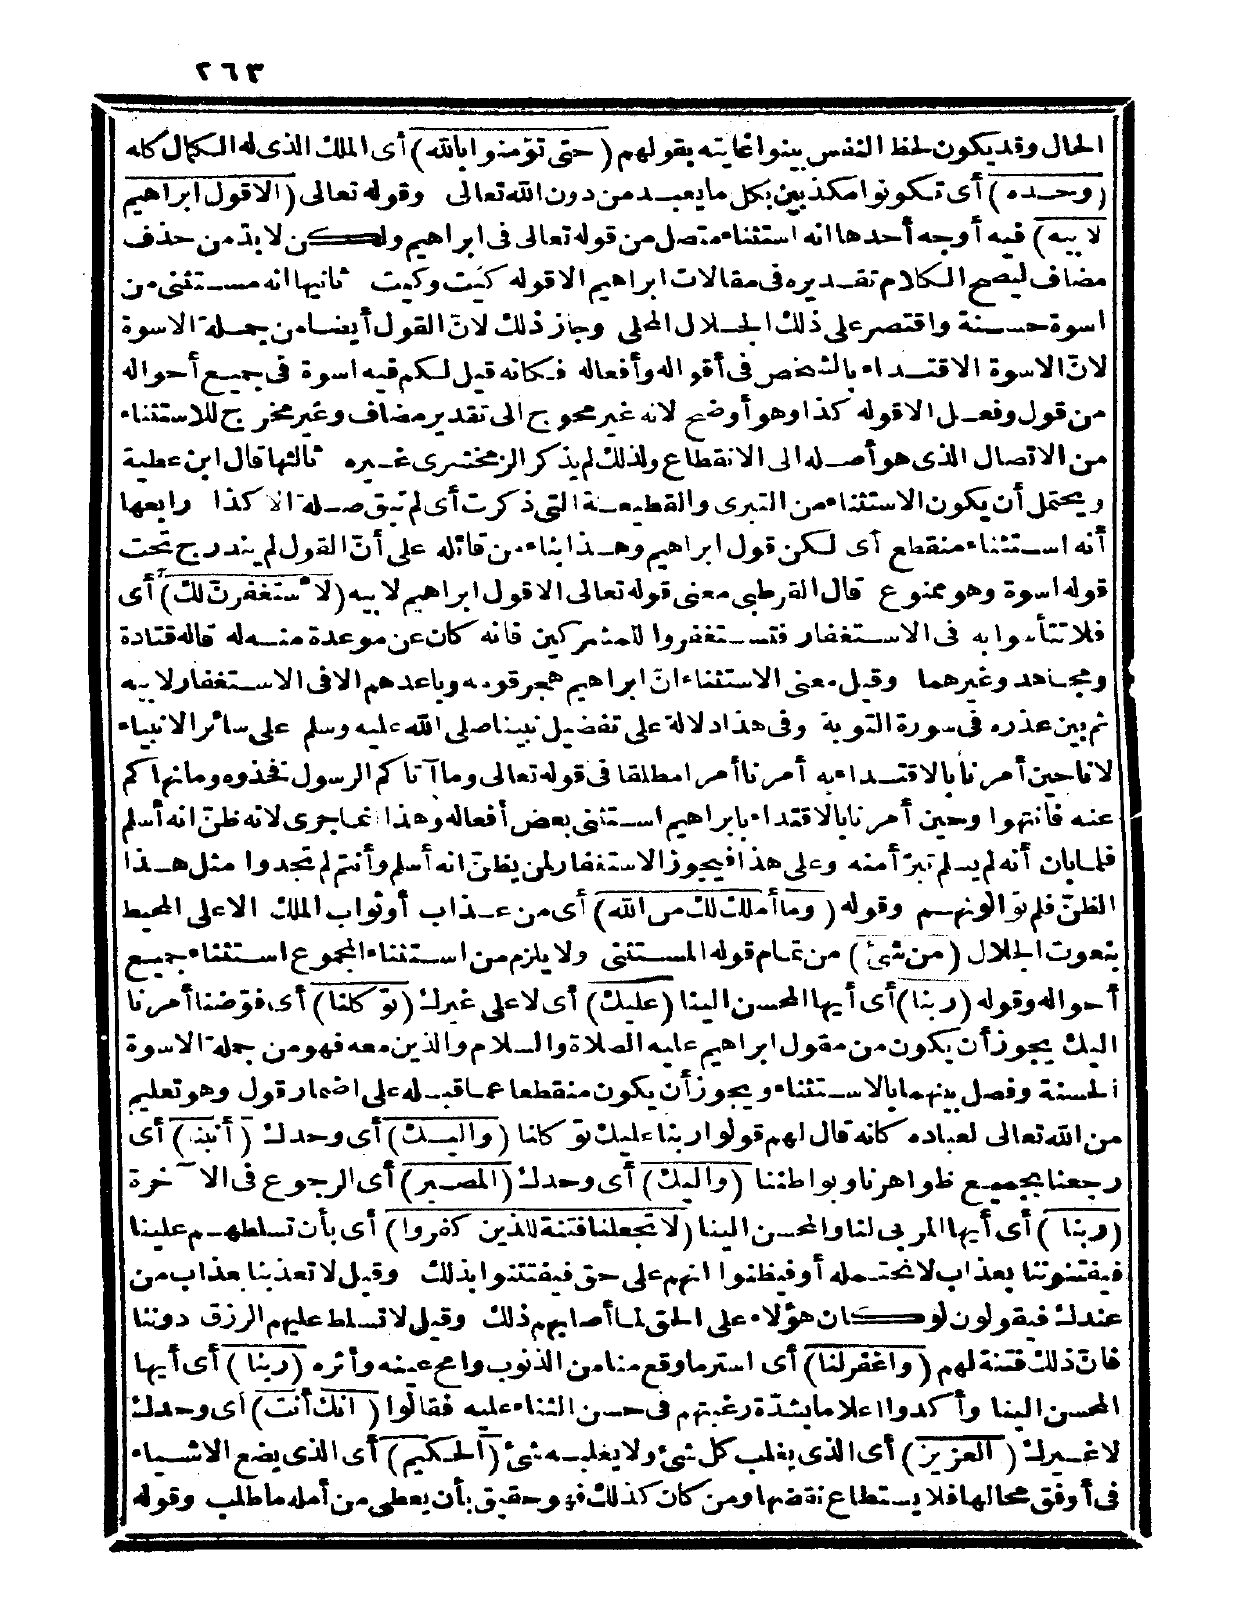 ٢٦٣
الحال وقد يكون لحظ النفس بينوا غايته بقولهم (حتى تؤمنوا بالله) أى الملك الذى له الكمال كله
(وحده) أى تكونوا مكذبين بكل ما يعبد من دون الله تعالى وقوله تعالى (الا قول ابراهيم
لابيه) فيه أوجه أحدها انه استثناء متصل من قوله تعالى فى ابراهيم ولكن لابد من حذف
مضاف ليصح الكلام تقديره فى مقالات ابراهيم الاقوله كيت وكيت ثانيها انه مستثنى من
اسوة حسنة واقتصر على ذلك الجلال المحلى وجاز ذلك لانّ القول أيضا من جملة الاسوة
لانّ الاسوة الاقتداء بالشخص فى أقواله وأفعاله فكانه قيل لكم فيه اسوة فى جميع أحواله
من قول وفعل الاقوله كذا وهو أوضح لانه غير محوج الى تقدير مضاف وغير مخرج للاستثناء
من الاتصال الذى هو أصله الى الانقطاع ولذلك لم يذكر الزمخشرى غيره ثالثها قال ابن عطية
ويحتمل أن يكون الاستثناء من التبرى والقطيعة التى ذكرت أى لم تبق صلة الا كذا رابعها
أنه استثناء منقطع أى لكن قول ابراهيم وهذا بناء من قائله على أنّ القول لم يندرج تحت
قوله اسوة وهو ممنوع قال القرطبى معنى قوله تعالى الاقول ابراهيم لابيه (لا ستغفرنّ لك) أى
فلا تتأسوا به فى الاستغفار فتستغفروا للمشركين فانه كان عن موعدة منه له قاله قتادة
ومجاهد وغيرهما وقيل معنى الاستثناء انّ ابراهيم هجر قومه وباعدهم الا فى الاستغفار لابيه
ثم بين عذره فى سورة التوبة وفى هذا دلالة على تفضيل نبينا صلى الله عليه وسلم على سائر الانبياء
لاناحين أمرنا بالاقتداء به أمرنا أمرا مطلقا فى قوله تعالى وما آتاكم الرسول فخذوه وما نهاكم
عنه فانتهوا وحين أمرنا بالاقتداء بابراهيم استثنى بعض أفعاله وهذا انما جرى لانه ظنّ انه أسلم
فلمابان أنه لم يسلم تبرّأ منه وعلى هذا فيجوز الاستغفار لمن يظنّ انه أسلم وأنتم لم تجدوا مثل هذا
الظنّ فلم توالونهم وقوله (وما أملك لك من الله) أى من عذاب أو ثواب الملك الاعلى المحيط
بنعوت الجلال (من شئ) من تمام قوله المستثنى ولا يلزم من استثناء المجموع استثناء جميع
أحواله وقوله (ربنا) أى أيها المحسن الينا (عليك) أى لا على غيرك (توكلنا) أى فوّضنا أمرنا
اليك يجوز أن يكون من مقول ابراهيم عليه الصلاة والسلام والذين معه فهو من جملة الاسوة
الحسنة وفصل بينهما بالاستثناء ويجوز أن يكون منقطعا عما قبله على اضمار قول وهو تعليم
من الله تعالى لعباده كانه قال لهم قولوا ربنا عليك توكلنا (واليك) أى وحدك (أنبنا) أى
رجعنا بجميع ظواهرنا وبواطننا (واليك) أى وحدك (المصير) أى الرجوع فى الآخرة
(ربنا) أى أيها المربى لنا والمحسن الينا (لا تجعلنا فتنة للذين كفروا) أى بأن تسلطهم علينا
فيفتنوننا بعذاب لا نحتمله أو فيظنوا انهم على حق فيفتتنوا بذلك وقيل لا تعذبنا بعذاب من
عندك فيقولون لو كان هؤلاء على الحق لما أصابهم ذلك وقيل لا تسلط عليهم الرزق دوننا
فانّ ذلك فتنة لهم (واغفر لنا) أى استر ما وقع منا من الذنوب وامح عينه وأثره (ربنا) أى أيها
المحسن الينا وأكدوا اعلاما بشدّة رغبتهم فى حسن الثناء عليه فقالوا (انك أنت) أى وحدك
لا غيرك (العزيز) أى الذى يغلب كل شئ ولا يغلبه شئ (الحكيم) أى الذى يضع الاشياء
فى أوفق محالها فلا يستطاع نقضها ومن كان كذلك فهو حقيق بأن يعطى من أمله ما طلب وقوله